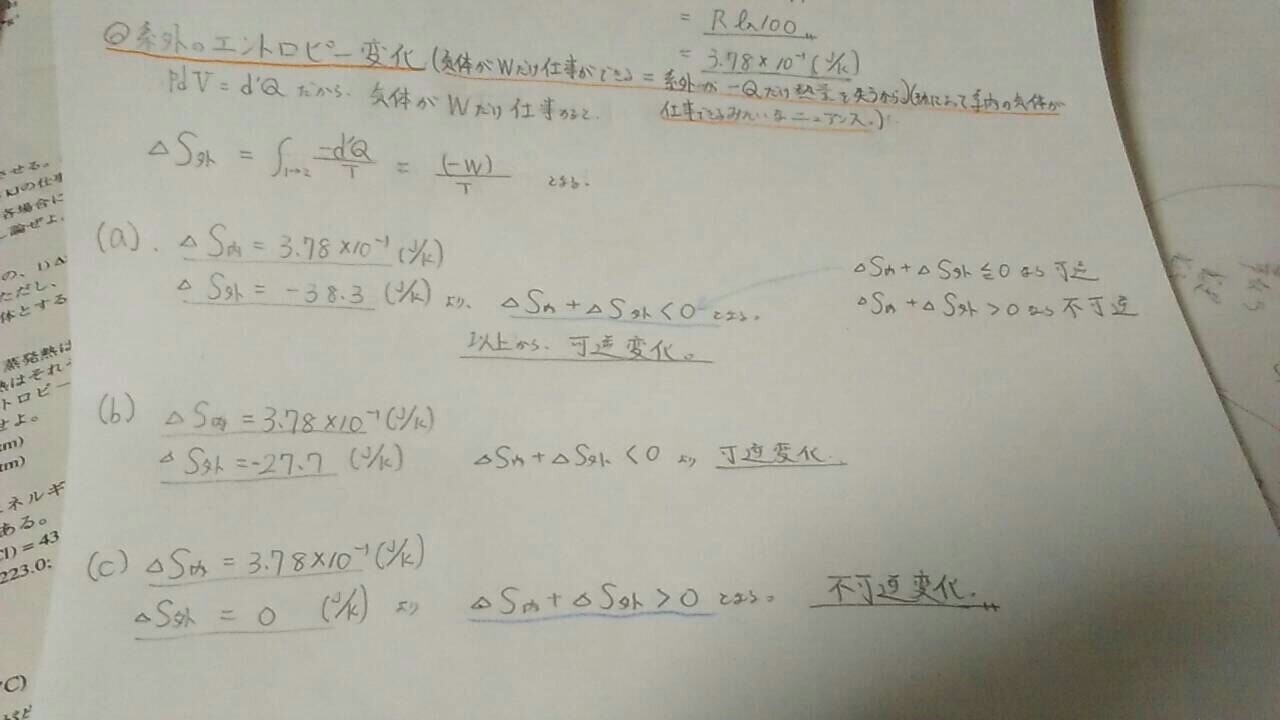 = R ln100
= 3.78×10⁻¹ (J/K)
◎系外のエントロピー変化 (気体がWだけ仕事ができる = 系外が −Qだけ熱量を失うから)(熱によって系内の気体が
仕事できるみたいなニュアンス。)
PdV = d'Q だから、気体が Wだけ仕事すると、
ΔS外 = ∫1→2 −d'Q/T = (−W)/T となる。
(a). ΔS内 = 3.78×10⁻¹ (J/K)
ΔS外 = −38.3 (J/K) より、ΔS内 + ΔS外 < 0 となる。
以上から、可逆変化。
ΔS内 + ΔS外 ≦ 0 なら 可逆
ΔS内 + ΔS外 > 0 なら 不可逆
(b) ΔS内 = 3.78×10⁻¹ (J/K)
ΔS外 = −27.7 (J/K) ΔS内 + ΔS外 < 0 より 可逆変化.
(c) ΔS内 = 3.78×10⁻¹ (J/K)
ΔS外 = 0 (J/K) より ΔS内 + ΔS外 > 0 となる。 不可逆変化.
させる。
kJの仕事
各場合に
論ぜよ.
ただし、
体とする
蒸発熱は
熱はそれ
トロピー
せよ。
ネルギ
ある。
Cl) = 43
223.0;